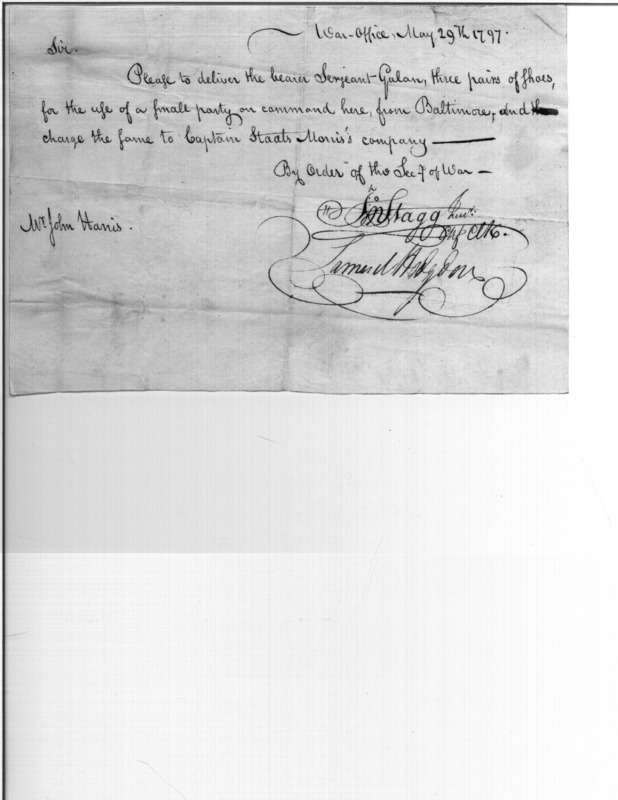 War-Office, May 29th 1797.
Sir.
Please to deliver the bearer Sergeant Galan, three pairs of Shoes,
for the use of a small party on command here, from Baltimore, and
charge the same to Captain Staats Morris's company —
By Order of the Secy of War —
Jno Stagg Junr.
Chf Clk.
Mr. John Harris.
Samuel Hodgdon